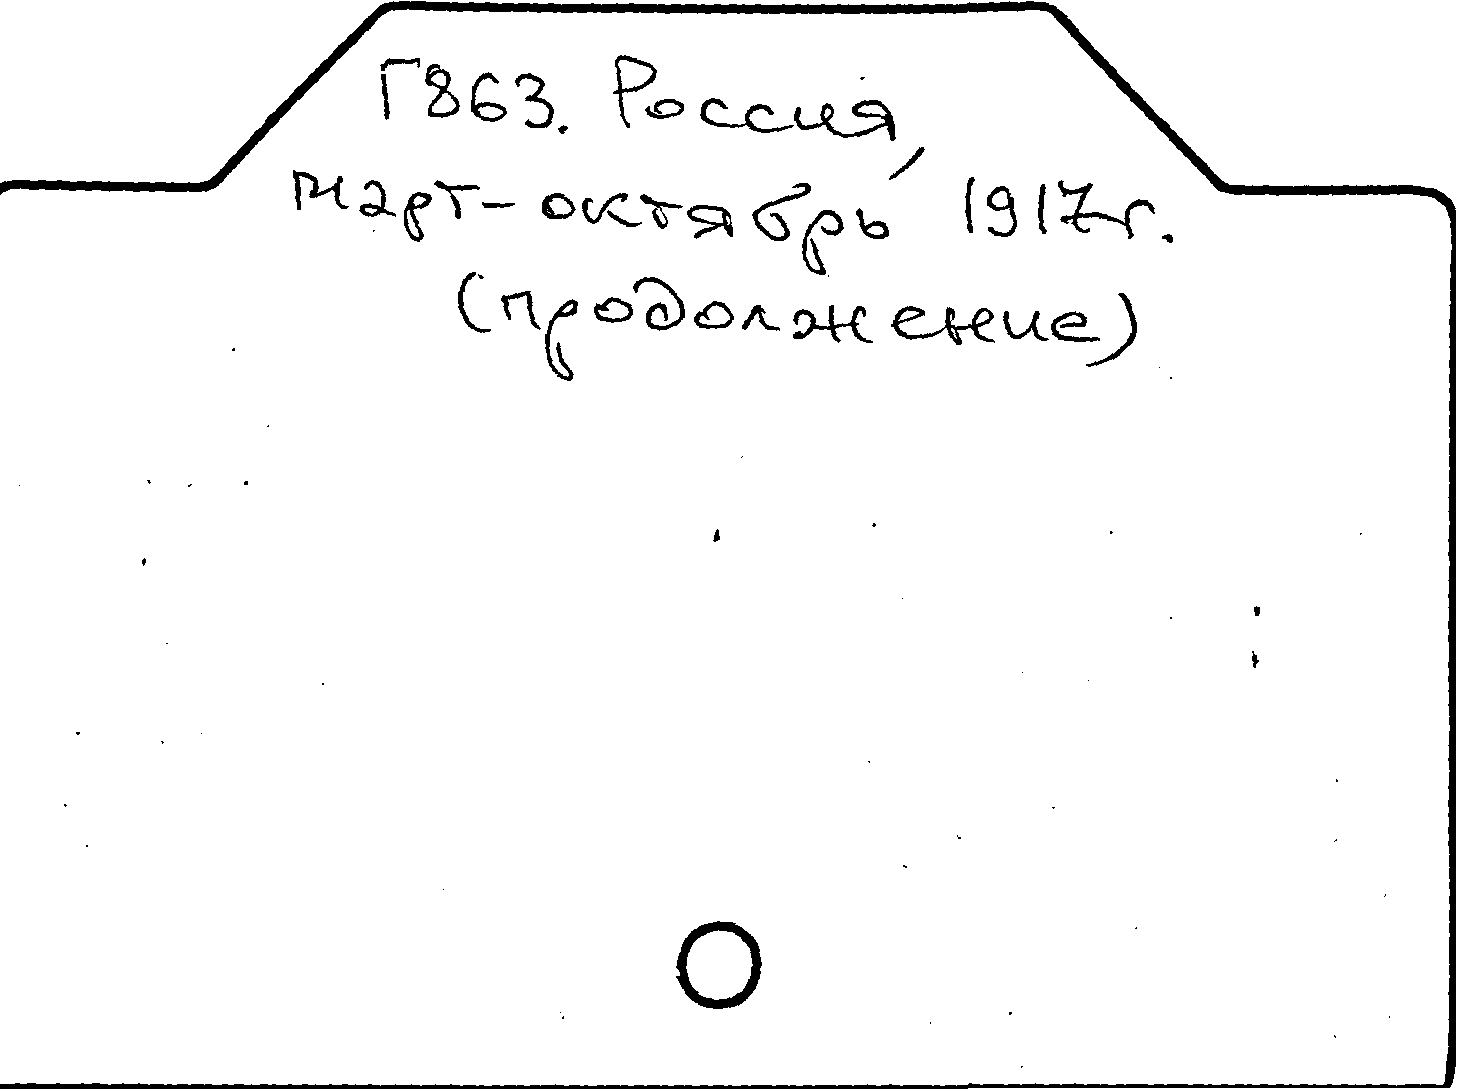 Г863. Россия,
март-октябрь 1917г.
(продолжение)